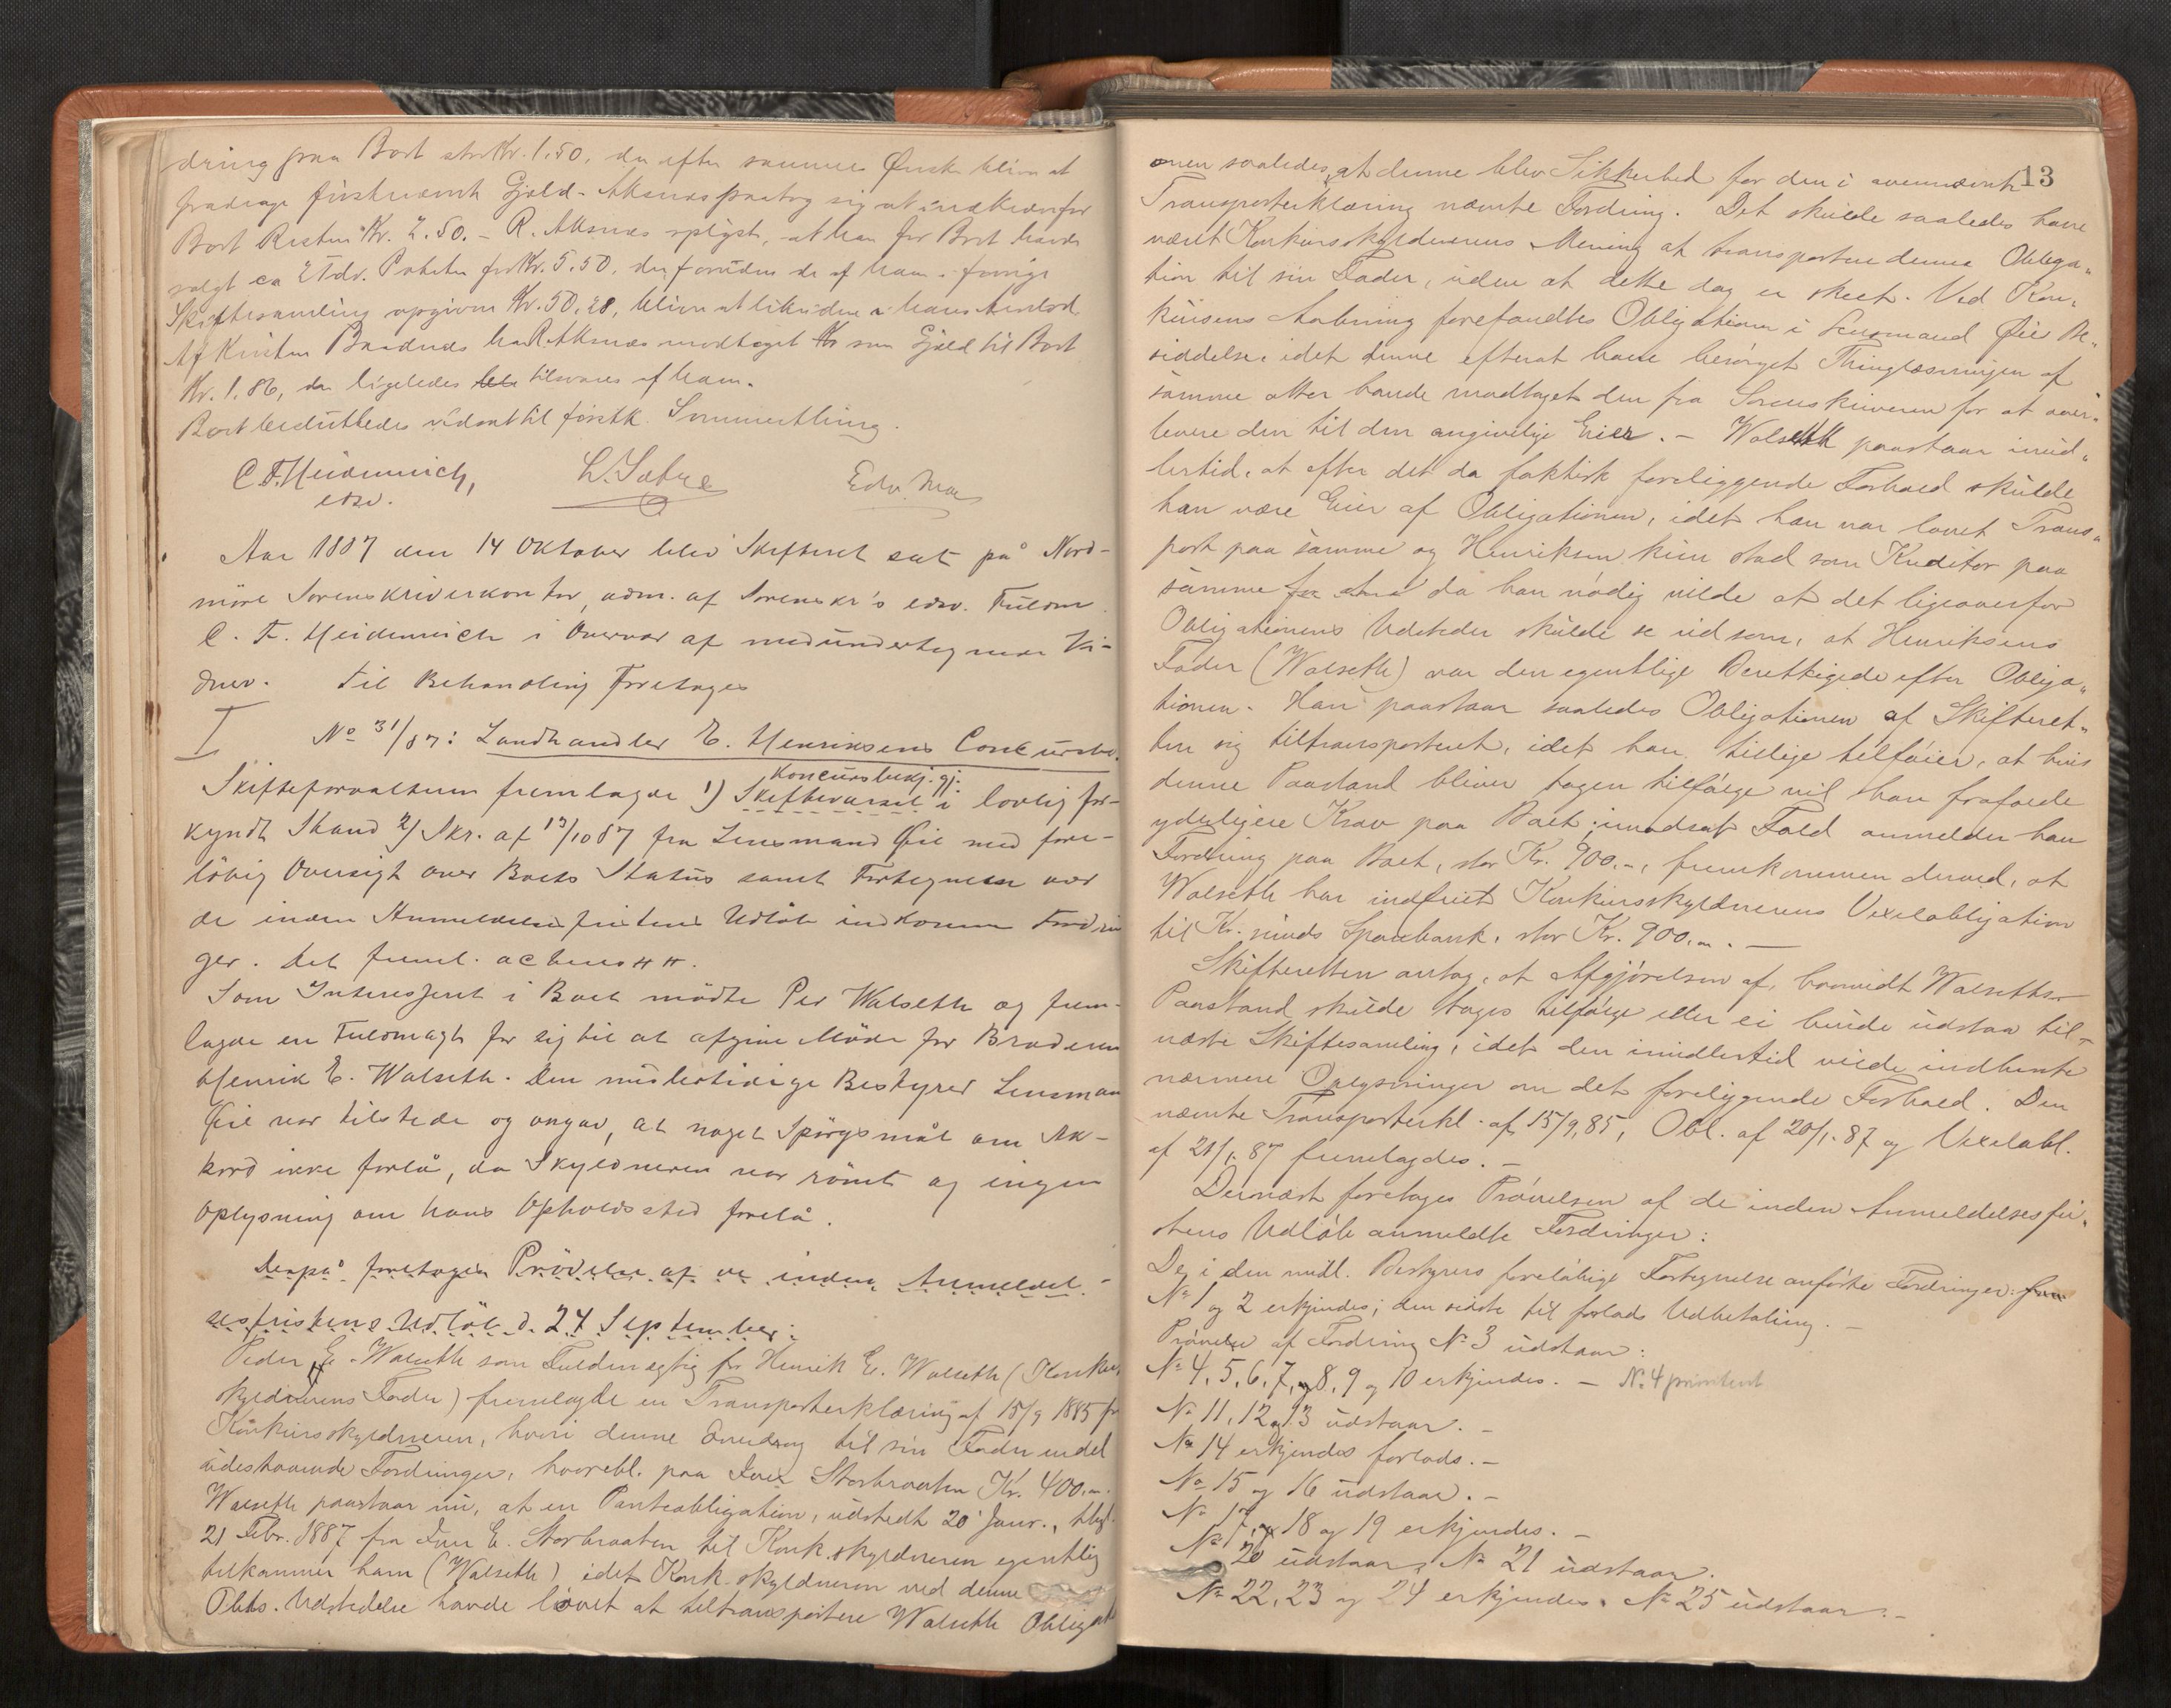 dring paa Boet stor Kr. 1.50, der efter sammes Ønske bliver at
fradrage førstnævnte Gjæld. Aksnes paatog sig at indkræve for
Boet Resten Kr. 2.50. - R. Aksnes oplyste, at han for Boet havde
solgt ca 2 Tdr. Poteter for Kr. 5.50, der foruden de af ham i forrige
Skiftesamling opgivne Kr. 50.28, bliver at likvidere i hans
Af Kristen Baadnes har R. Aksnes modtaget som Gjæld til Boet
Kr. 1.86, der ligeledes tilsvares af ham.
Boet besluttedes udsat til førstk. Sommerthing.
C. F. Heidenreich, L. Sætre Edv. Moe
edsv.
Aar 1887 den 14 Oktober blev Skifteret sat på Nord-
möre Sorenskriverkontor, adm. af Sorenskr's edsv. Fuldm.
C. F. Heidenreich i Overvær af medundertegnede Vi-
dner. Til Behandling foretoges
I No 31/87: Landhandler E. Henriksens Concursbo.
Koncursbekj.gj.
Skifteforvalteren fremlagde 1) Skiftevarsel i lovlig for-
kyndt Stand 2) Skr. af 13/10 87 fra Lensmand Øie med fore-
löbig Oversigt over Boets Status samt Fortegnelse over
de inden Anmeldelsesfristens Udlöb indkomne Fordrin
ger. Det freml. acteres
Som Interesseret i Boet mödte Per Walseth og frem-
lagde en Fuldmagt for sig til at afgive Möde for Broderen
Henrik E. Walseth. Den midlertidige Bestyrer Lensman
Øie var tilstede og angav, at noget Spörgsmål om Ak-
kord ikke forlå, da Skyldneren var römt og ingen
Oplysning om hans Opholdssted forelå.
Derpå foretoges Prövelse af de inden Anmeldel-
sesfristens Udlöb d. 24 September:
Peder E. Walseth som Fuldmægtig for Henrik E. Walseth (Konkurs
skyldnerens Fader) fremlagde en Transporterklæring af 15/9 1885 fra
Konkursskyldneren, hvori denne overdrog til sin Fader endel
udestaaende Fordringer, hvoribl. paa Iver Storbraaten Kr. 400.-.
Walseth paastaar nu, at en Panteobligation, udstedt 20 Janr., thgl.
21 Febr. 1887 fra Iver E. Storbraaten til Konk.skyldneren egentlig
tilkommer ham (Walseth), idet Konk.skyldneren ved denne
Obls. Udstedelse havde lovet at tiltransportere Walseth Obligati
13
onen saaledes, at denne blev Sikkerhed for den i ovennævnte
Transporterklæring nævnte Fordring. Det skulde saaledes have
været Konkursskyldnerens Mening at transportere denne Obliga-
tion til sin Fader, uden at dette dog er skeet. Ved Kon-
kursens Aabning forefandtes Obligationen i Lensmand Øie Be-
siddelse, idet denne efterat have besørget Thinglæsningen af
samme atter havde modtaget den fra Sorenskriveren for at over-
levere den til den angivelige Eier. - Walseth paastaar imid-
lertid, at efter det da faktisk foreliggende Forhold skulde
han være Eier af Obligationen, idet han var lovet Trans-
port paa samme og Henriksen kun stod som Kreditor paa
samme da han nødig vilde at det ligeoverfor
Obligationens Udsteder skulde se ud som, at Henriksens
Fader (Walseth) var den egentlige Berettigede efter Obliga-
tionen. Han paastaar saaledes Obligationen af Skifteret-
ten sig tiltransporteret, idet han tillige tilføier, at hvis
denne Paastand bliver tagen tilfølge vil han frafalde
yderligere Krav paa Boet; imodsat Fald anmelder han
Fordring paa Boet, stor Kr. 900.-, fremkommen derved, at
Walseth har indfriet Konkursskyldnerens Vexelobligation
til Kr.sunds Sparebank, stor Kr. 900.-. -
Skifteretten antog, at Afgjørelsen af, hvorvidt Walseths
Paastand skulde tages tilfølge eller ei burde udstaa til
næste Skiftesamling, idet den imidlertid vilde indhente
nærmere Oplysninger om det foreliggende Forhold. Den
nævnte Transporterkl. af 15/9.85, Obl. af 20/1.87 og Vexelobl.
af 21/1.87 fremlagdes. -
Dernæst foretages Prøvelsen af de inden Anmeldelsesfri-
stens Udløb anmeldte Fordringer:
De i den midl. Bestyrers foreløbige Fortegnelse anførte Fordringer:
No 1 og 2 erkjendes; den sidste til forlods Udbetaling. -
Prøvelse af Fordring No 3 udstaar:
No 4, 5, 6, 7, 8, 9 og 10 erkjendes. - No. 4 prioritert
No 11, 12 og 13 udstaar. -
No 14 erkjendes forlods. -
No 15 og 16 udstaar. -
No 17, 18 og 19 erkjendes. -
No 20 udstaar, No 21 udstaar.
No 22, 23 og 24 erkjendes. No 25 udstaar. -